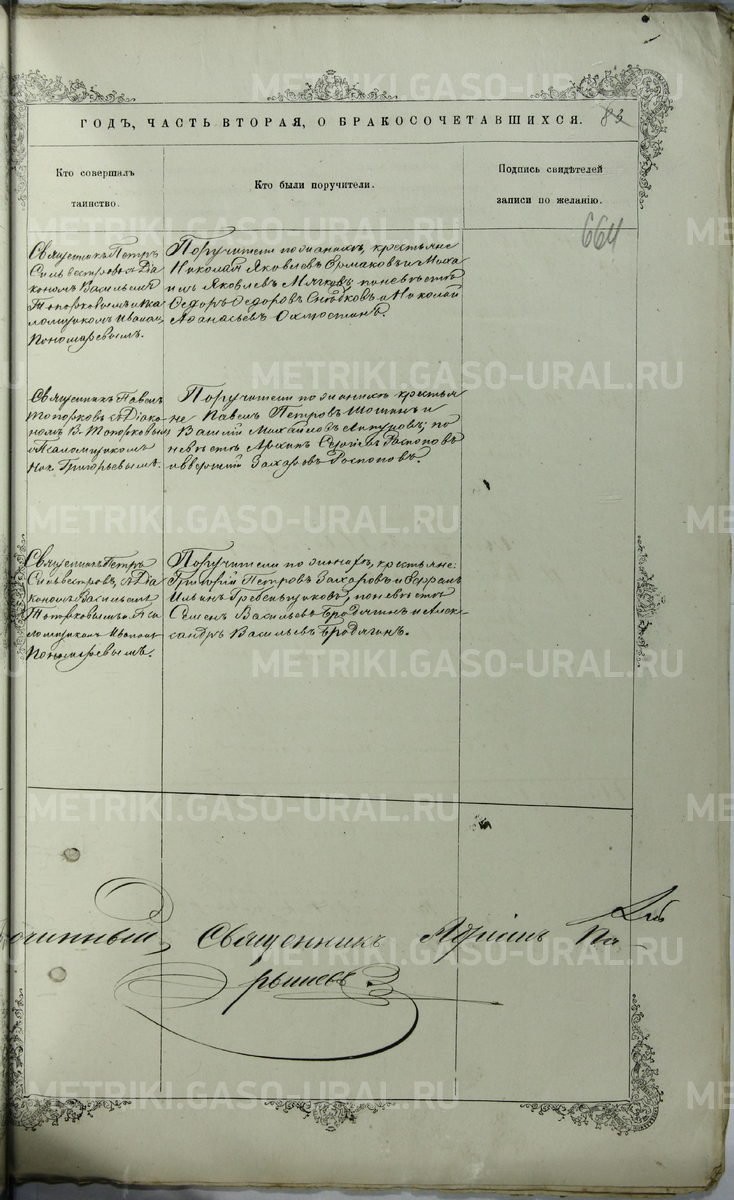 ГОДЪ, ЧАСТЬ ВТОРАЯ, О БРАКОСОЧЕТАВШИХСЯ.
83
Кто совершалъ
таинство.
Кто были поручители.
Подпись свидѣтелей
записи по желанію.
664
Священникъ Петръ
Сильвестровъ съ Діа
кономъ Васильемъ
Топорковымъ и Пса
ломщикомъ Иваномъ
Пономаревымъ.
Поручители по женихѣ, крестьяне
Николай Яковлевъ Ермаковъ и Миха
илъ Яковлевъ Мячковъ, по невѣстѣ
Ѳедоръ Ѳедоровъ и Николай
Аѳанасьевъ Охлюстинъ.
Священникъ Павелъ
Топорковъ съ Діако
номъ В. Топорковымъ
и Псаломщикомъ
Григорьевымъ.
Поручители по женихѣ крестья
не Павелъ Петровъ и
Василій Михайловъ по
невѣстѣ Архипъ Распоповъ
Захаровъ Распоповъ.
Священникъ Петръ
Сильвестровъ, съ Діа
кономъ Васильемъ
Топорковымъ и Пса
ломщикомъ Иваномъ
Пономаревымъ.
Поручители по женихѣ, крестьяне:
Григорій Петровъ Захаровъ и
Ильинъ Гребеньщиковъ, по невѣстѣ
Семенъ Васильевъ Бродягинъ и Алек-
сандръ Васильевъ Бродягинъ.
Священникъ Адріанъ Па-
рышевъ
METRIKI.GASO-URAL.RU